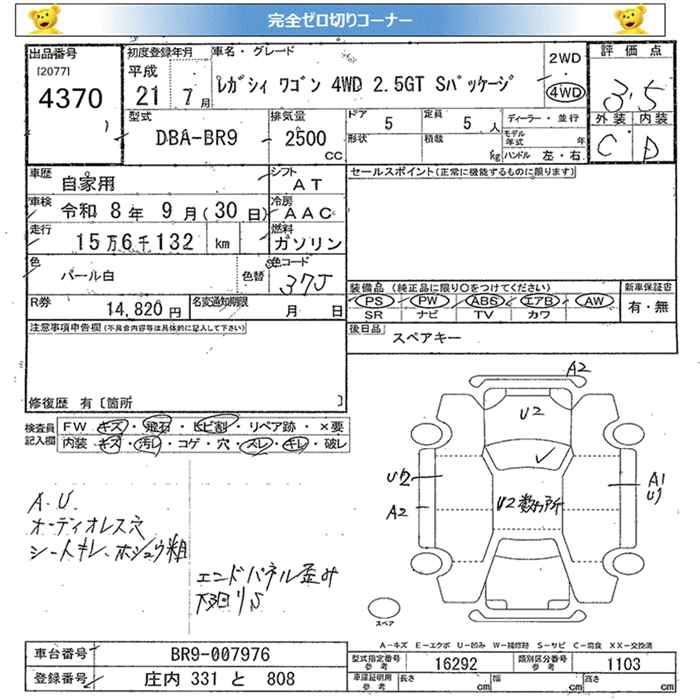 完全ゼロ切りコーナー
出品番号
[2077]
4370
初度登録年月
平成
21 7月
車名・グレード
レガシィ ワゴン 4WD 2.5GT Sパッケージ
2WD
4WD
評価点
3.5
外装 内装
C D
型式
DBA-BR9
排気量
2500
CC
ドア
5
定員
5 人
形状
積載
kg
ディーラー・並行
モデル年式 年
ハンドル 左・右
車歴
自家用
シフト
AT
車検
令和 8年 9月(30日)
冷房
AAC
走行
15万6千132 km
燃料
ガソリン
色
パール白
色替
色コード
37J
R券
14,820円
名変通知期限
月 日
セールスポイント(正常に機能するものに限ります)
装備品 (純正品に限り○をつけてください)
PS PW ABS エアB AW
SR ナビ TV カワ
新車保証書
有・無
後日品
スペアキー
注意事項申告欄(不具合内容等は具体的に記入して下さい)
修復歴 有〔箇所 〕
検査員記入欄
FW キズ・飛石・ヒビ割・リペア跡・×要
内装 キズ・汚レ・コゲ・穴・スレ・キレ・破レ
A.U.
オーディオレス穴
シートキレ、ホシュウ粗
エンドパネル歪み
下回りS
A2
U2
U2
A2
U2数ヶ所
A1
U1
スペア
A-キズ E-エクボ U-凹み W-補修跡 S-サビ C-腐食 XX-交換済
車台番号
BR9-007976
登録番号
庄内 331 と 808
型式指定番号
参考
16292
類別区分番号
参考
1103
車庫証明用
参考
長さ cm
幅 cm
高さ cm